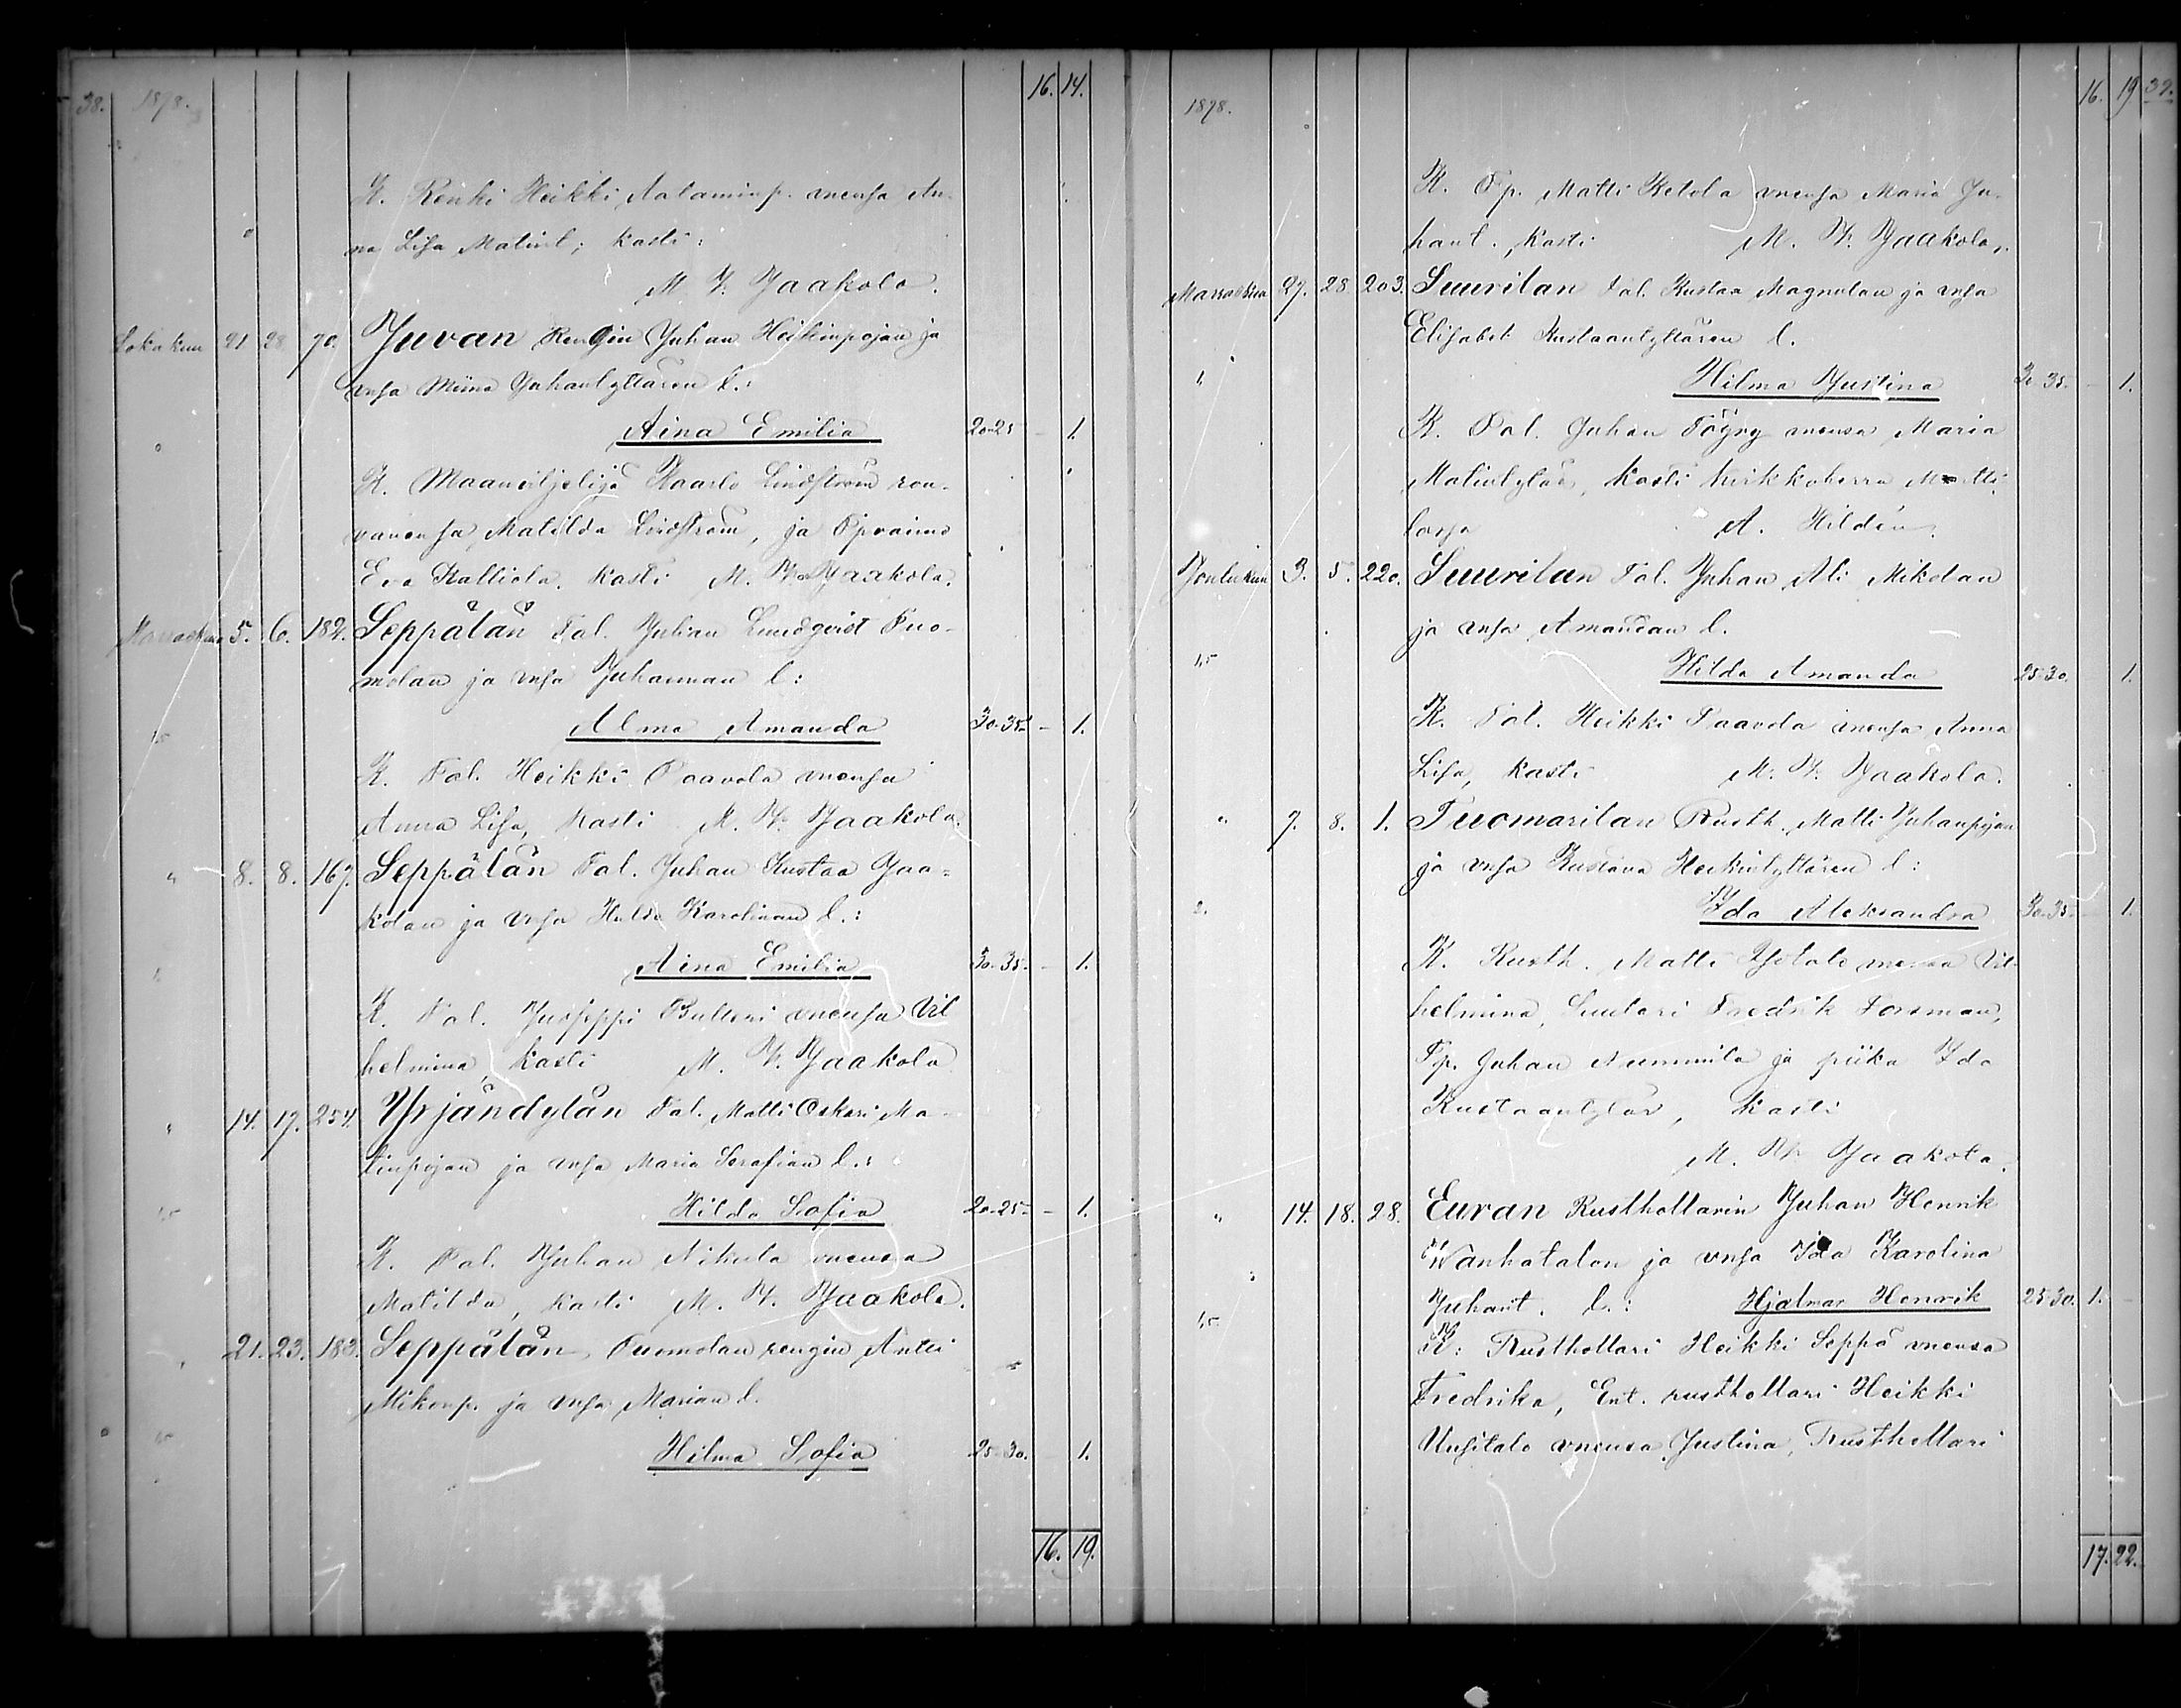 38. 1878. 16. 14.
K. Renki Heikki Aataminp. vmensa An-
na Lisa Matint; kasti:
M. W. Jaakola.
Lokakuu 21 28 70. Juvan Rengin Juhan Heikinpojan ja
vnsa Miina Juhantyttären l.:
Aina Emilia 20-25 - 1.
K. Maanviljelijä Kaarlo Lindström rou-
vanensa Matilda Lindström, ja Spvaimo
Eva Kalliola. Kasti M. W. Jaakola.
Marraskuu 5. 6. 182. Seppälän Tal. Julian Lundqvist Tuo-
molan ja vnsa Juhannan l:
15 Alma Amanda 30-35 - 1.
K. Tal. Heikki Paavola vmensa
Anna Lisa, kasti M. W. Jaakola.
" 8. 8. 167. Seppälän Tal. Juhan Kustaa Jaa-
kolan ja vnsa Hulda Karolinan l.:
Aina Emilia 30-35. - 1.
K. Tal. Juoseppi Bulleri vmensa Vil
helmina, kasti M. W. Jaakola
" 14. 17. 254. Yrjändylän Tal. Matti Oskari Ma-
tinpojan ja vnsa Maria Serafian l.:
15 Hilda Sofia 20-25 - 1.
K. Tal. Juhan Nikula vmensa
Matilda, kasti M. W. Jaakola.
" 21. 23. 183. Seppälän Tuomolan rengin Antti
Mikonp. ja vnsa Marian l.
15 Hilma Sofia 25-30. 1.
16. 19.
1878. 16. 19 39.
K. Tp. Matti Ketola vmensa Maria Ju-
hant., kasti M. W. Jaakola.
Marraskuu 27. 28 203. Suurilan Tal. Kustaa Magnulan ja vnsa
Elisabet Kustaantyttären l.
1. Hilma Justina 30-35. - 1.
K. Tal. Juhan Töyry vmensa Maria
Matintytär, kasti kirkkoherra Martti
lassa A. Hildén.
Joulukuu 3. 5. 220. Suurilan Tal. Juhan Ali Mikolan
ja vnsa Amandan l.
15 Hilda Amanda 25-30. 1.
K. Tal. Heikki Paavola vmensa Anna
Lisa, kasti M. W. Jaakola.
" 7. 8. 1. Tuomarilan Rusth. Matti Juhanpojan
ja vnsa Kustava Heikintyttären l:
2. Ida Aleksandra 30-35. - 1.
K. Rusth. Matti Isotalo vmensa Vil-
helmina, Suutari Fredrik Forsman,
Tp. Juhan Nummila ja piika Ida
Kustaantytär, kasti
M. W. Jaakola.
" 14. 18. 28. Euran Rusthollarin Juhan Henrik
Wanhatalon ja vnsa Ida Karolina
15 Juhant. l.: Hjalmar Henrik 25-30. 1. -
K: Rusthollari Heikki Seppä vmensa
Fredrika, Ent. rusthollari Heikki
Uusitalo vmensa Justina, Rusthollari
17. 22.